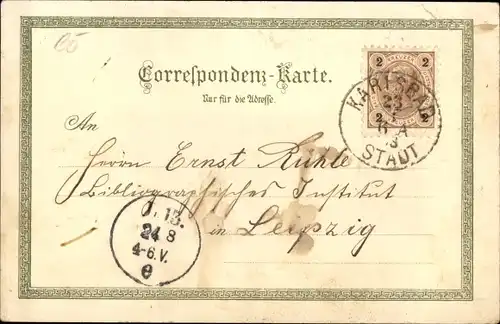 Correspondenz-Karte.
Nur für die Adresse.
2 2
2 2
KARLSBAD
STADT
An
Herrn Ernst Ruhle
Bibliographisches Institut
in Leipzig
13.
24 8
4-6.V.
e